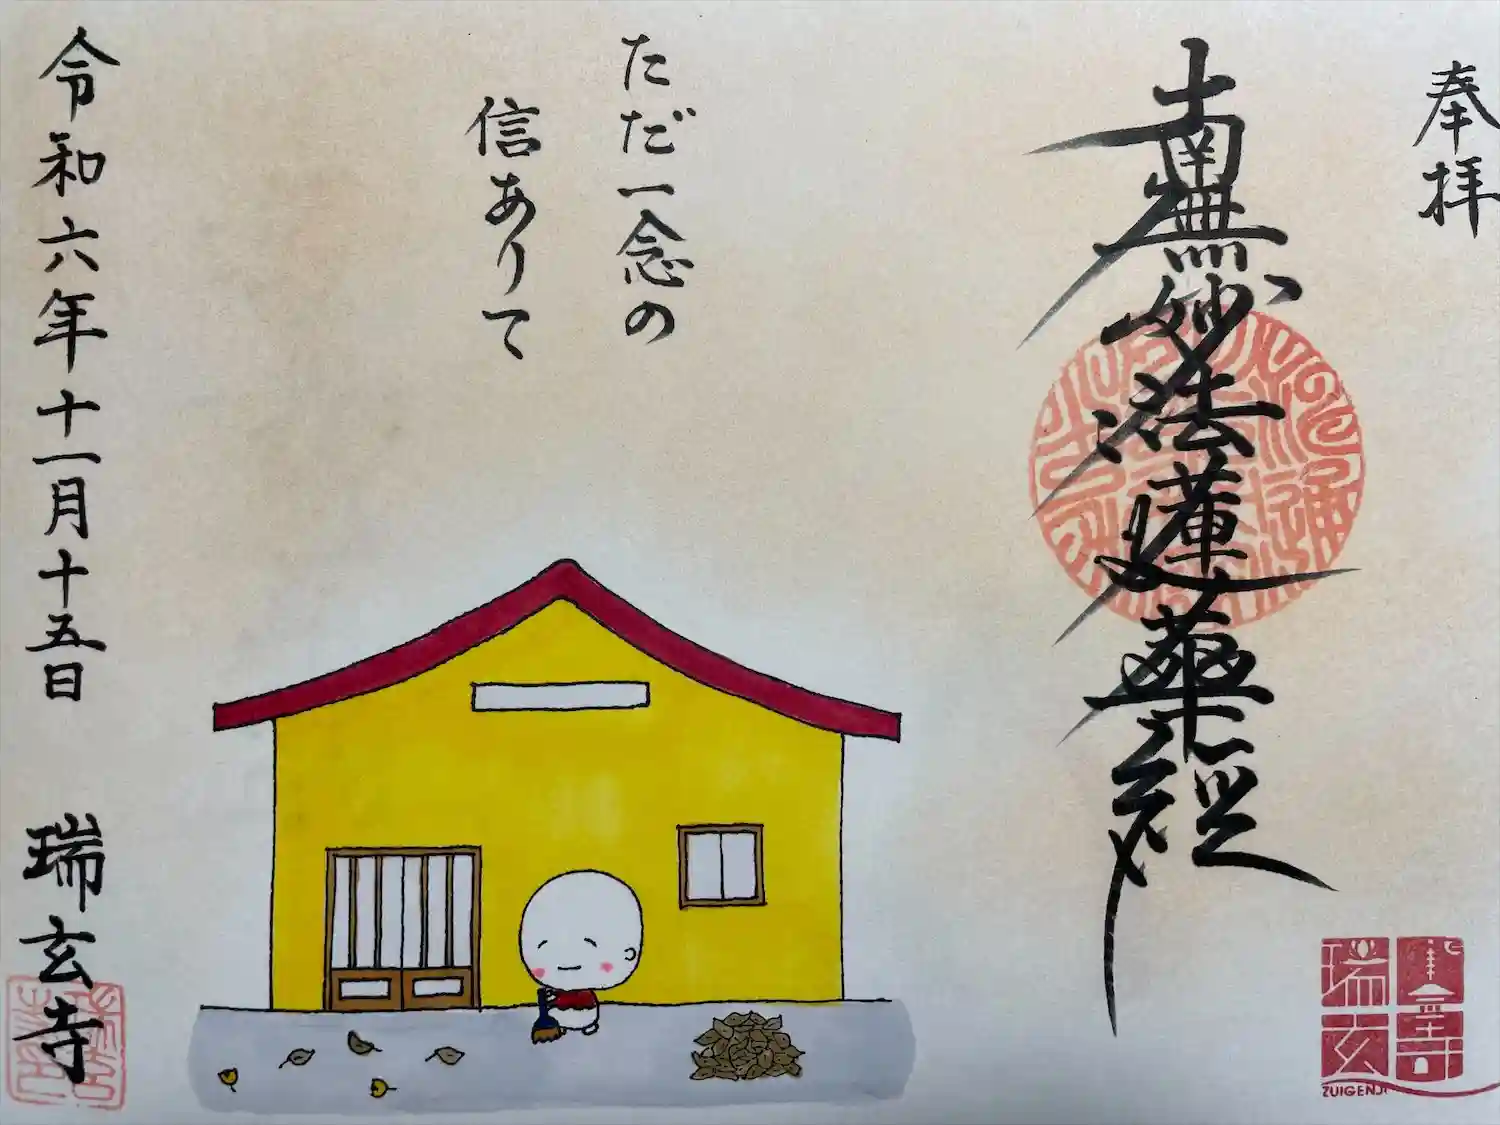 奉拝
南無妙法蓮華経
ただ一念の
信ありて
令和六年十一月十五日 瑞玄寺
瑞玄
ZUIGENJI